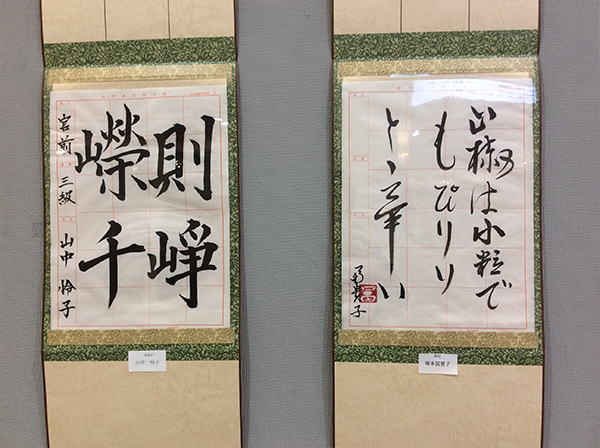 則崢
嶸千
宮前 三級 山中 怜子
山中 怜子
山椒は小粒で
もぴりり
とゝ辛い
富貴子
塚本富貴子